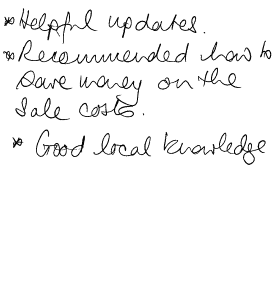 * Helpful updates.
* Recommended how to
save money on the
Sale costs.
* Good local knowledge